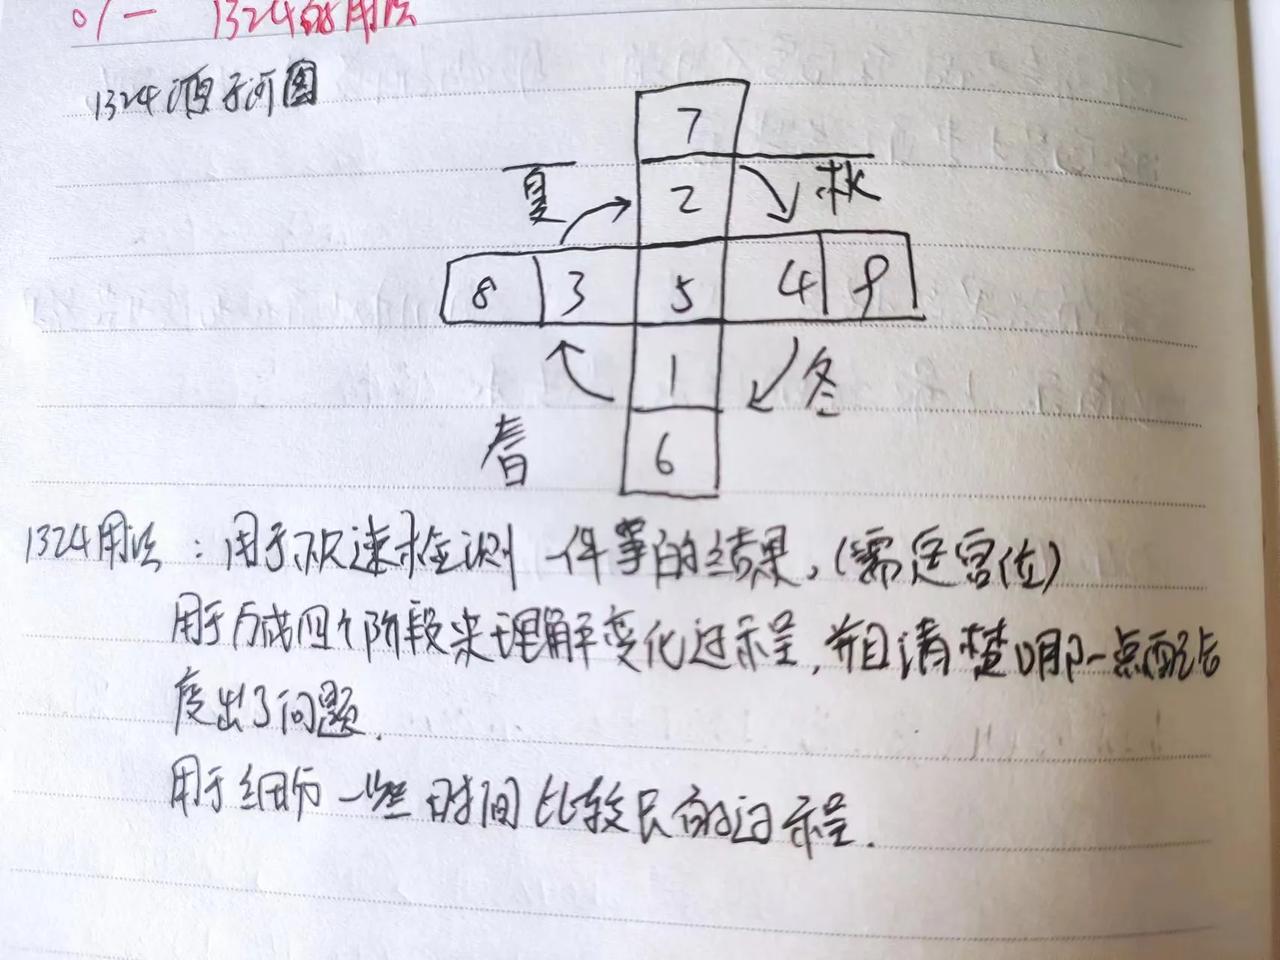 一 1324的用法
1324源于河图
7
夏 2 秋
8 3 5 4 9
1 冬
春 6
1324用法：用于快速检测一件事的结果，(需定宫位)
用于分成四个阶段来理解变化过程，并且清楚哪一点配
度出了问题.
用于细历一些时间比较长的过程.